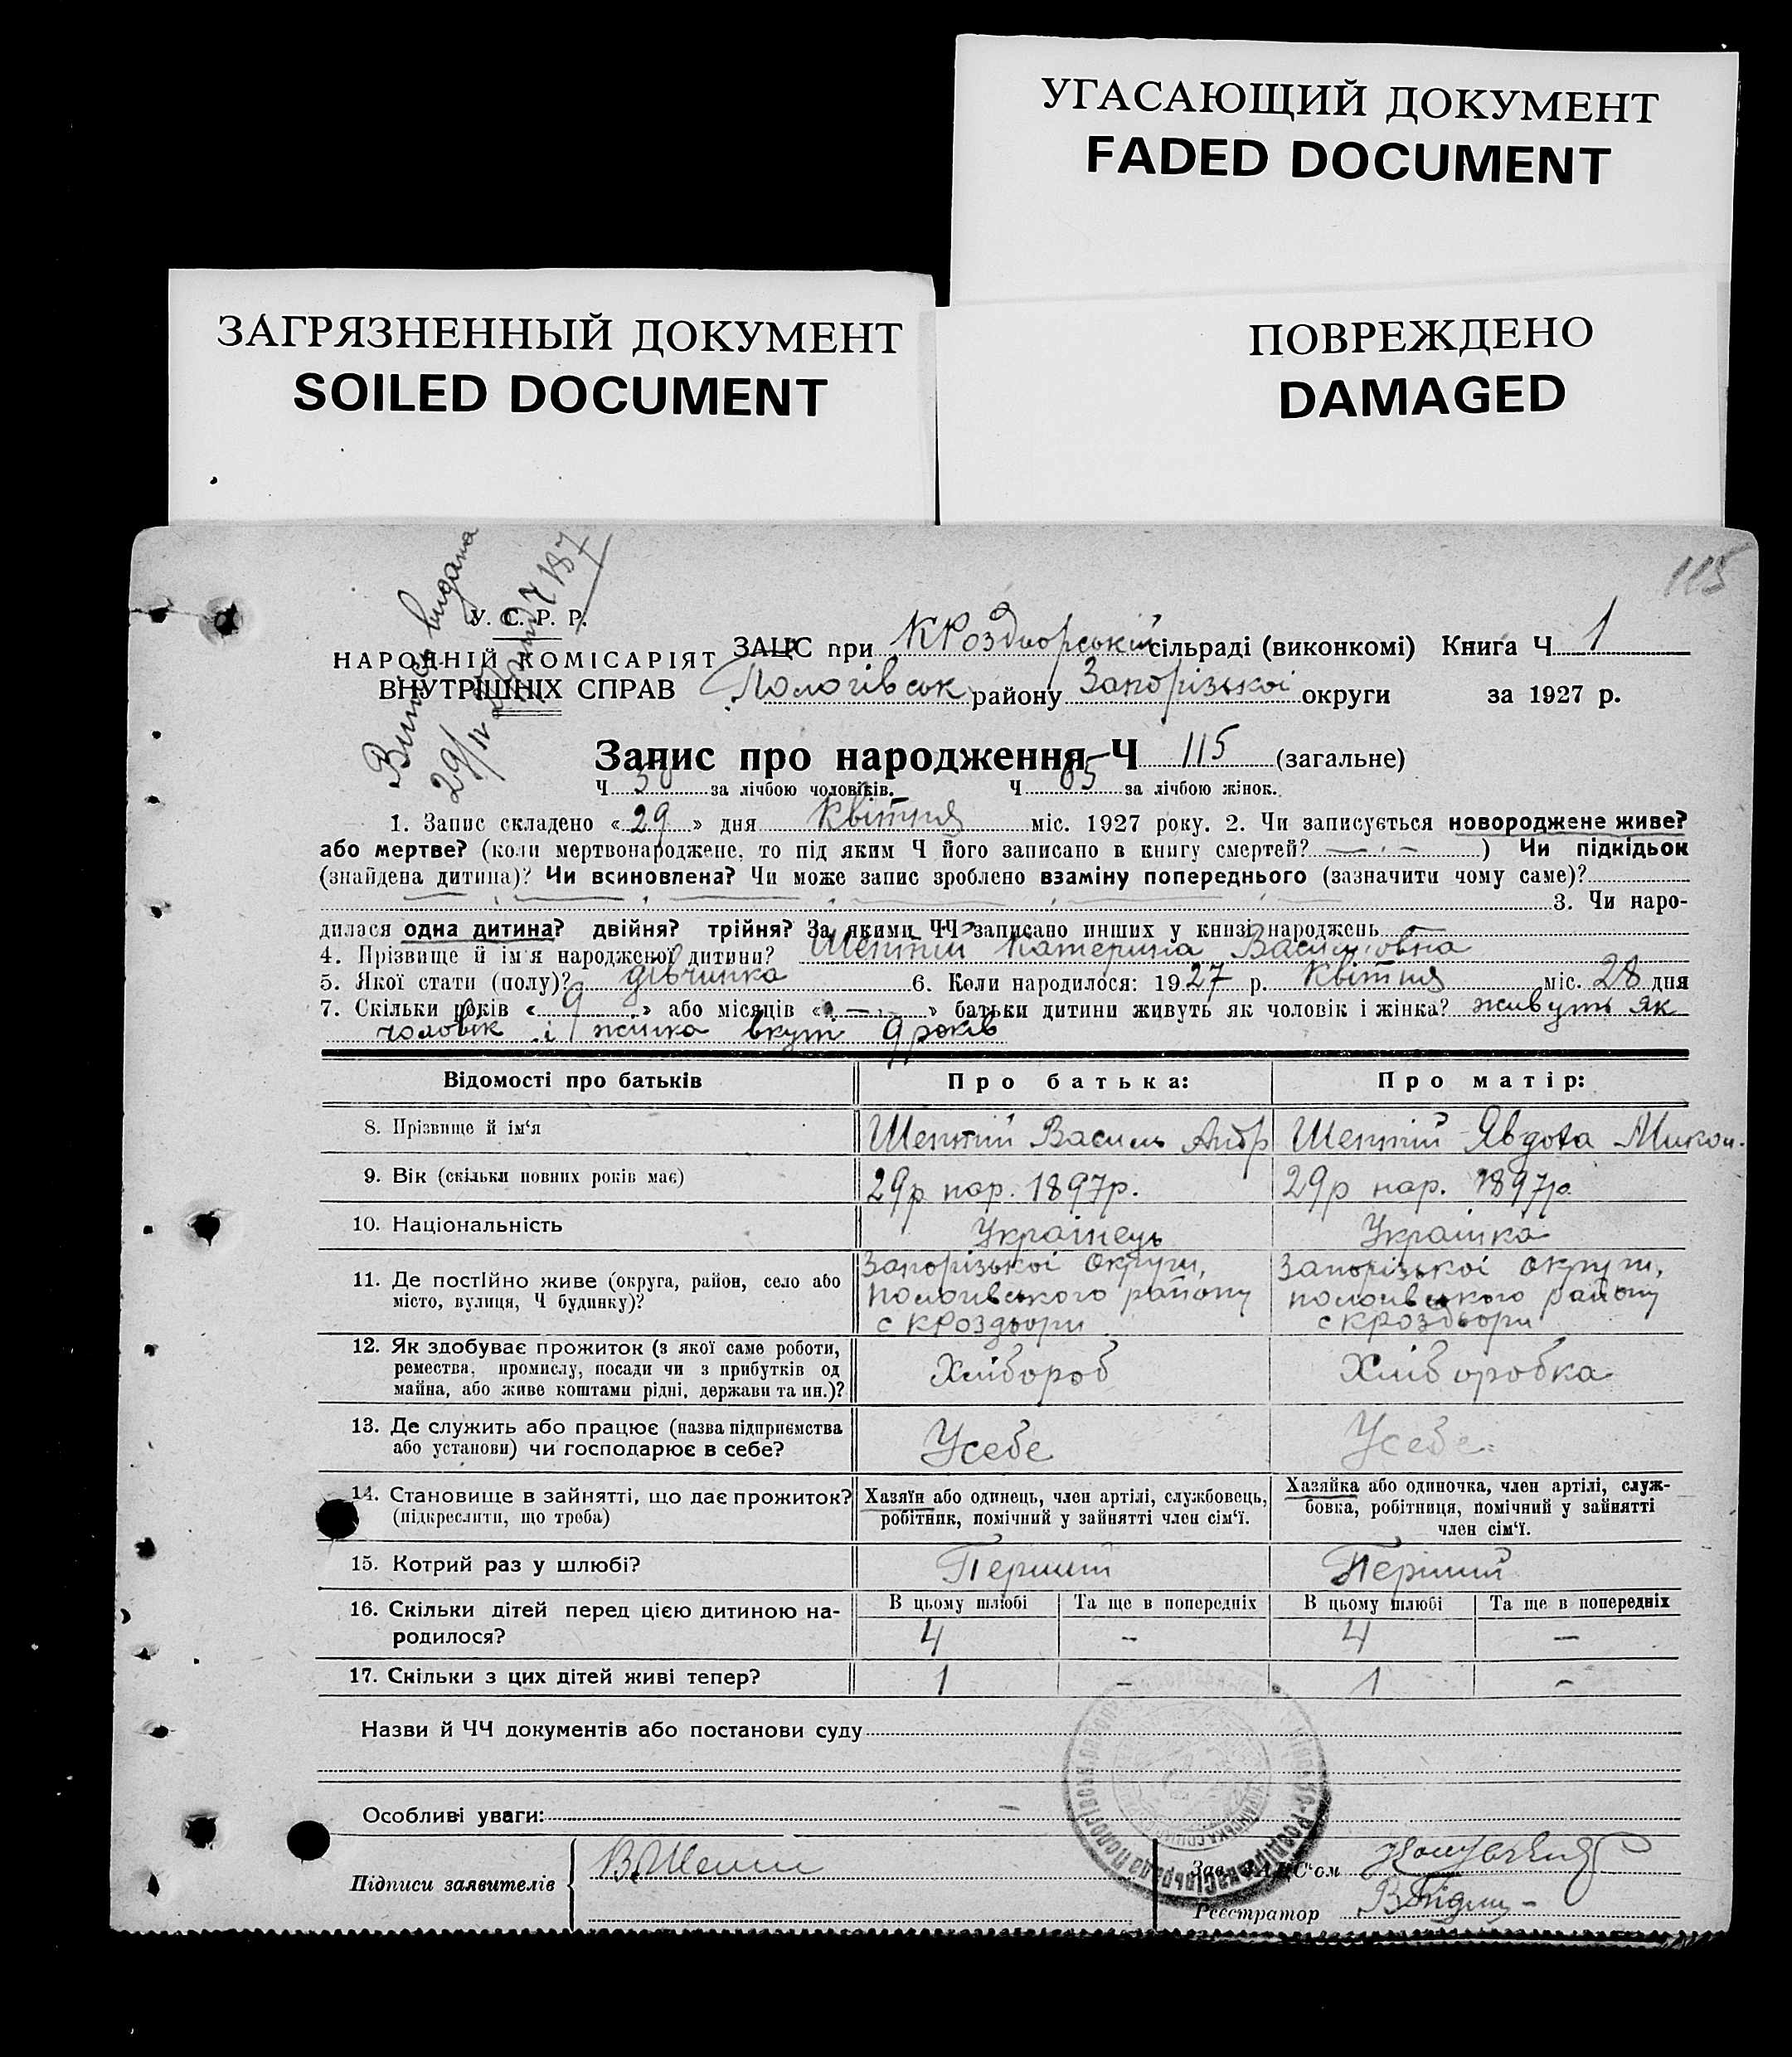 УГАСАЮЩИЙ ДОКУМЕНТ
FADED DOCUMENT
ЗАГРЯЗНЕННЫЙ ДОКУМЕНТ
SOILED DOCUMENT
ПОВРЕЖДЕНО
DAMAGED
115
Випись видана
29/IV
У. С. Р. Р.
НАРОДНІЙ КОМІСАРІЯТ
ВНУТРІШНІХ СПРАВ
ЗАЦС при КРоздворській сільраді (виконкомі) Книга Ч 1
Пологівськ району Запорізької округи за 1927 р.
Запис про народження Ч 115 (загальне)
Ч 50 за лічбою чоловіків. Ч 65 за лічбою жінок.
1. Запис складено « 29 » дня Квітня міс. 1927 року. 2. Чи записується новороджене живе?
або мертве? (коли мертвонароджене, то під яким Ч його записано в книгу смертей? — . — ) Чи підкідьок
(знайдена дитина)? Чи всиновлена? Чи може запис зроблено взаміну попереднього (зазначити чому саме)?
3. Чи наро-
дилася одна дитина? двійня? трійня? За якими ЧЧ записано инших у книзі народжень
4. Прізвище й ім'я народженої дитини? Шептій Катерина Василівна
5. Якої стати (полу)? дівчинка 6. Коли народилося: 1927 р. Квітня міс. 28 дня
7. Скільки років « 9 » або місяців « — » батьки дитини живуть як чоловік і жінка? живуть як
чоловік і жінка вкупі 9 років
Відомості про батьків Про батька: Про матір:
8. Прізвище й ім'я Шептій Василь Андр Шептій Явдота Микол.
9. Вік (скільки повних років має) 29р нар. 1897р. 29р нар. 1897р.
10. Національність Українець Українка
11. Де постійно живе (округа, район, село або місто, вулиця, Ч будинку)?
Запорізької округи, Запорізької округи,
Пологівського району Пологівського району
с КРоздори с КРоздори
12. Як здобуває прожиток (з якої саме роботи,
ремества, промислу, посади чи з прибутків од
майна, або живе коштами рідні, держави та ин.)?
Хлібороб Хліборобка
13. Де служить або працює (назва підприємства
або установи) чи господарює в себе?
Усебе Усебе
14. Становище в зайнятті, що дає прожиток?
(підкреслити, що треба)
Хазяїн або одинець, член артілі, службовець,
робітник, помічний у зайнятті член сім'ї.
Хазяйка або одиночка, член артілі, служ-
бовка, робітниця, помічний у зайнятті
член сім'ї.
15. Котрий раз у шлюбі? Перший Перший
16. Скільки дітей перед цією дитиною на-
родилося?
В цьому шлюбі Та ще в попередніх В цьому шлюбі Та ще в попередніх
4 – 4 –
17. Скільки з цих дітей живі тепер? 1 – 1 –
Назви й ЧЧ документів або постанови суду
Особливі уваги: —
Підписи заявителів В.Шептій
Зав. ЗАЦС'ом
Реєстратор